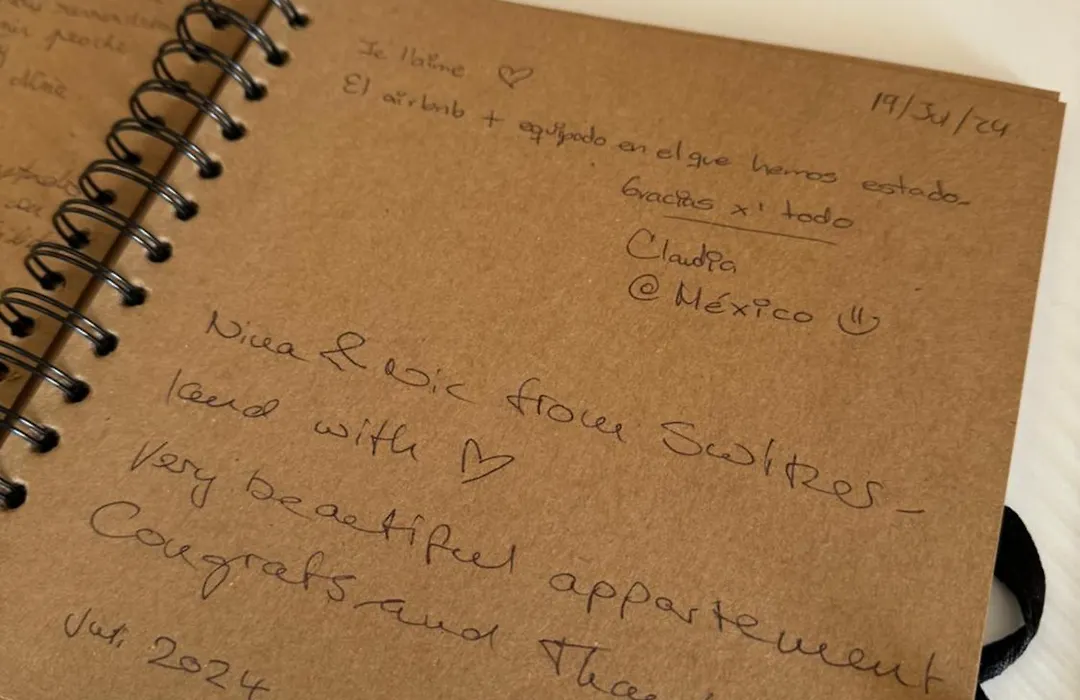 19/Jul/24
Je l'aime ♡
El airbnb + equipado en el que hemos estado.
Gracias x' todo
Claudia
@ México
Nina & Nic from Switzer-
land with ♡
Very beautiful appartement
Congrats and
Juli 2024